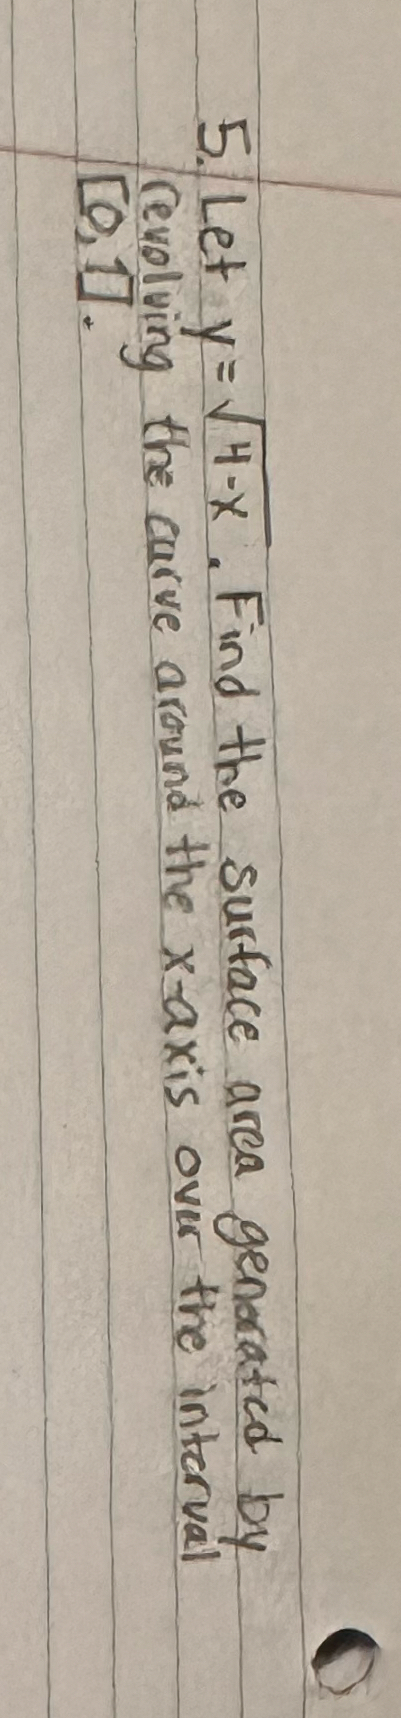 5. Let y = √4-x. Find the surface area generated by
revolving the curve around the x-axis over the interval
[0,1].